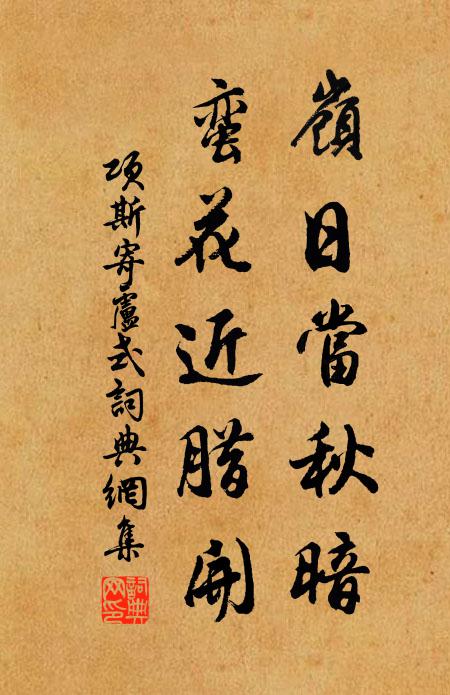 嶺日當秋暗
蛮花近腊開
項斯寄盧式詞典網集
詞典網印